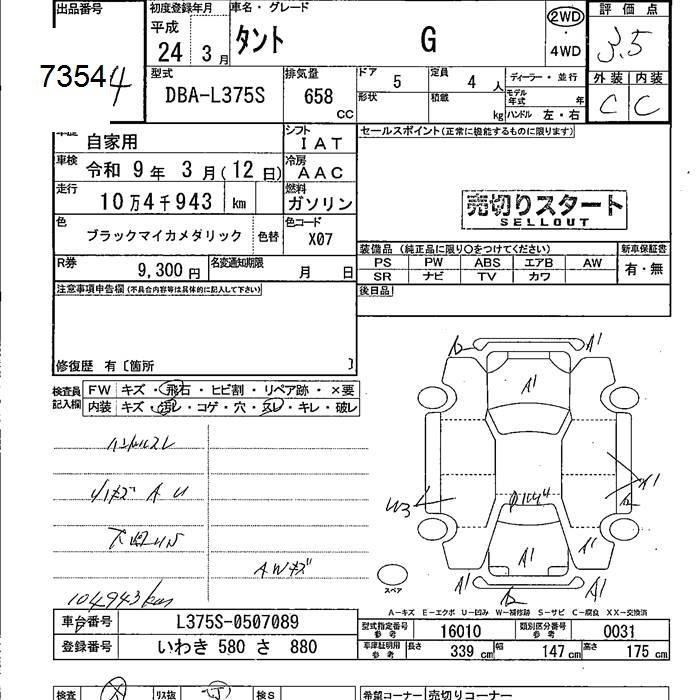 出品番号
73544
初度登録年月 平成 24 3月
車名・グレード
タント G
2WD ・ 4WD
評価点
3.5
型式
DBA-L375S
排気量
658 CC
ドア 5
定員 4 人
形状
積載 kg
ディーラー・並行
モデル年式 年
ハンドル 左・右
外装 内装
C C
自家用
シフト
IAT
車検 令和 9年 3月(12日)
冷房
AAC
走行 10万4千943 km
燃料
ガソリン
色 ブラックマイカメダリック 色替
色コード
X07
R券 9,300円
名変通知期限 月 日
セールスポイント(正常に機能するものに限ります)
売切りスタート
SELLOUT
装備品 (純正品に限り○をつけてください)
新車保証書
PS PW ABS エアB AW
有・無
SR ナビ TV カワ
後日品
注意事項申告欄(不具合内容等は具体的に記入して下さい)
修復歴 有〔箇所 〕
検査員記入欄
FW キズ・飛石・ヒビ割・リペア跡・×要
内装 キズ・汚レ・コゲ・穴・スレ・キレ・破レ
ハンドルスレ
小キズ A U
下廻りS
AWキズ
104943km
A1
A1
W3
A1
A1
A1
A1
A1
スペア
A-キズ E-エクボ U-凹み W-補修跡 S-サビ C-腐食 XX-交換済
車台番号 L375S-0507089
登録番号 いわき 580 さ 880
型式指定番号 参考 16010
類別区分番号 参考 0031
車庫証明用 参考 長さ 339 cm 幅 147 cm 高さ 175 cm
検査
リス抜
検S
希望コーナー 売切りコーナー